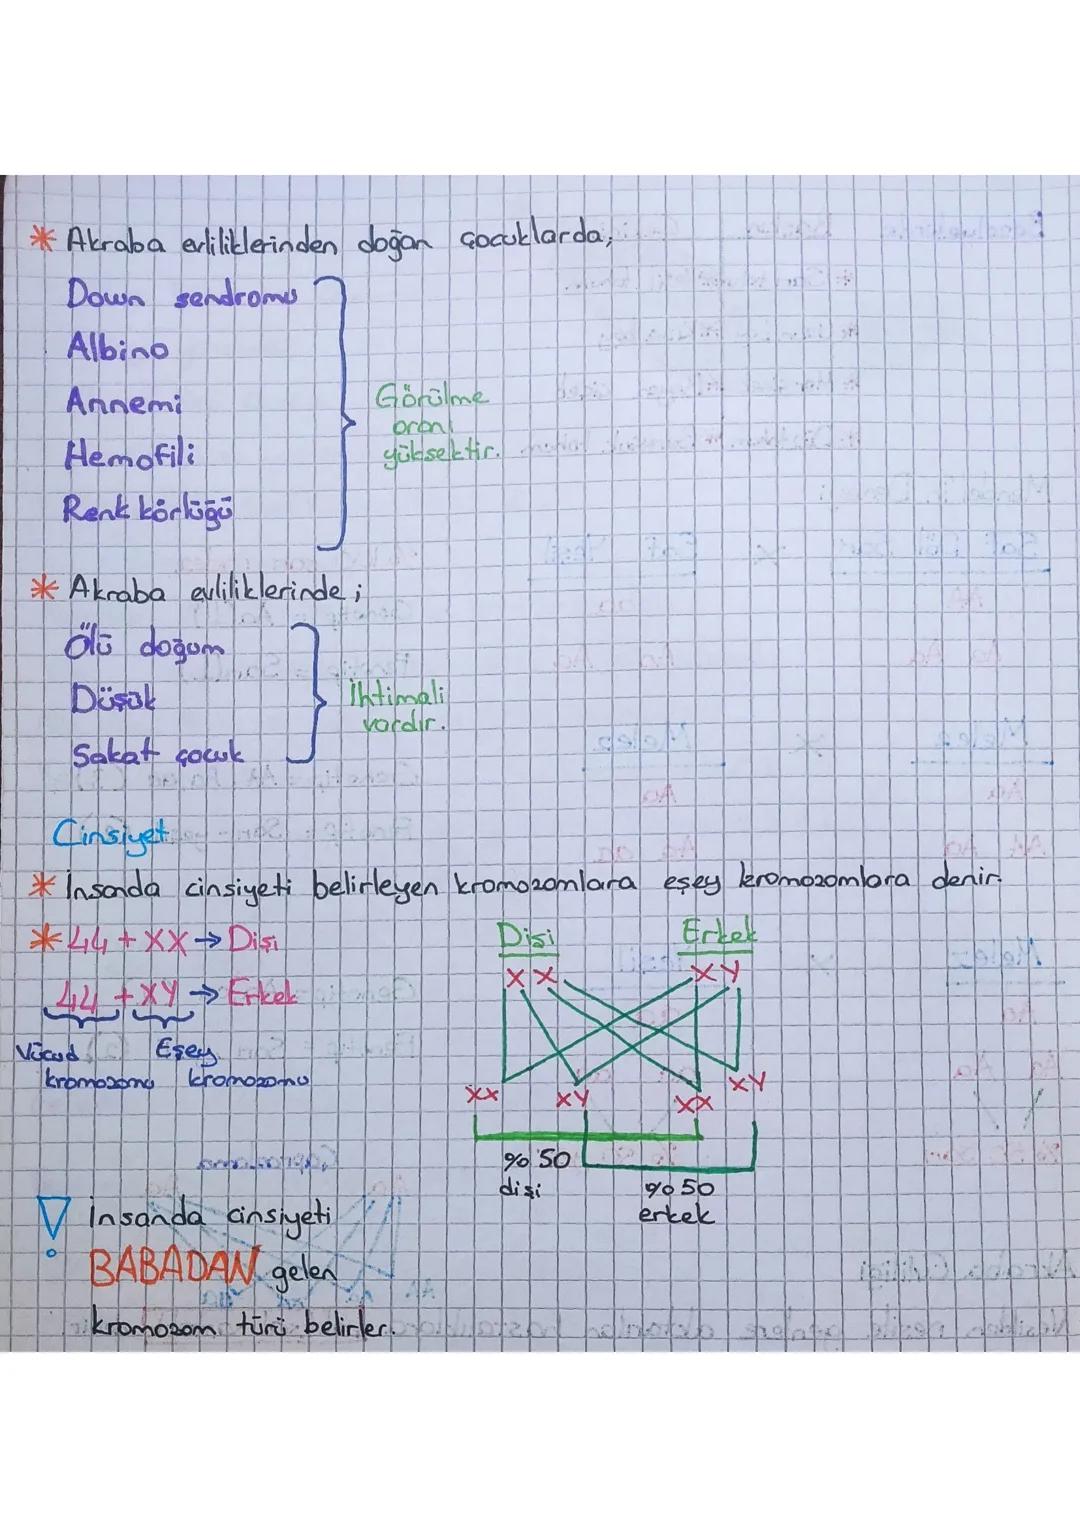 * Akraba evliliklerinden doğan çocuklarda;
Down sendromu
Albino
Annemi
Hemofili
Renk körlüğü
Görülme
oranı
yüksektir.
* Akraba evliliklerinde;
Ölü doğum
Düşük
Sakat çocuk
İhtimali
vardır.
Cinsiyet
* İnsanda cinsiyeti belirleyen kromozomlara eşey kromozomlara denir.
* 44 + XX → Dişi
44 + XY → Erkek
Vücud
kromozomu
Eşey
kromozomu
Dişi
Erkek
X X
XY
XX
XY
XX
XY
%50
dişi
%50
erkek
! İnsanda cinsiyeti
BABADAN gelen
kromozom türü belirler.